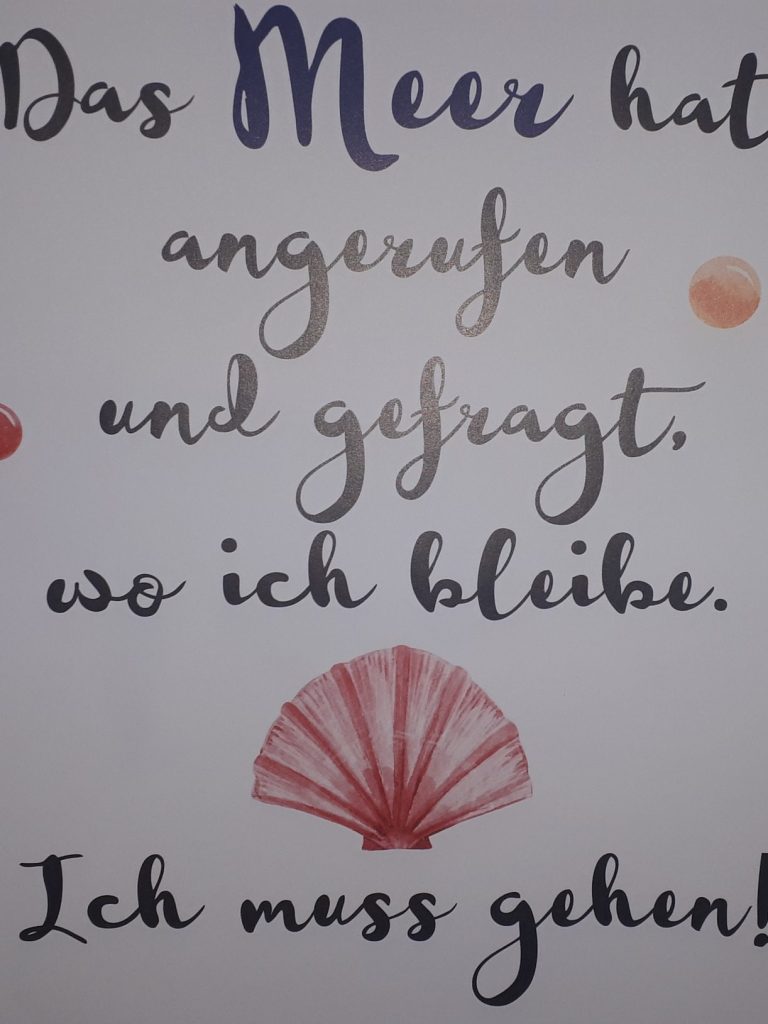 Das Meer hat
angerufen
und gefragt,
wo ich bleibe.
Ich muss gehen!